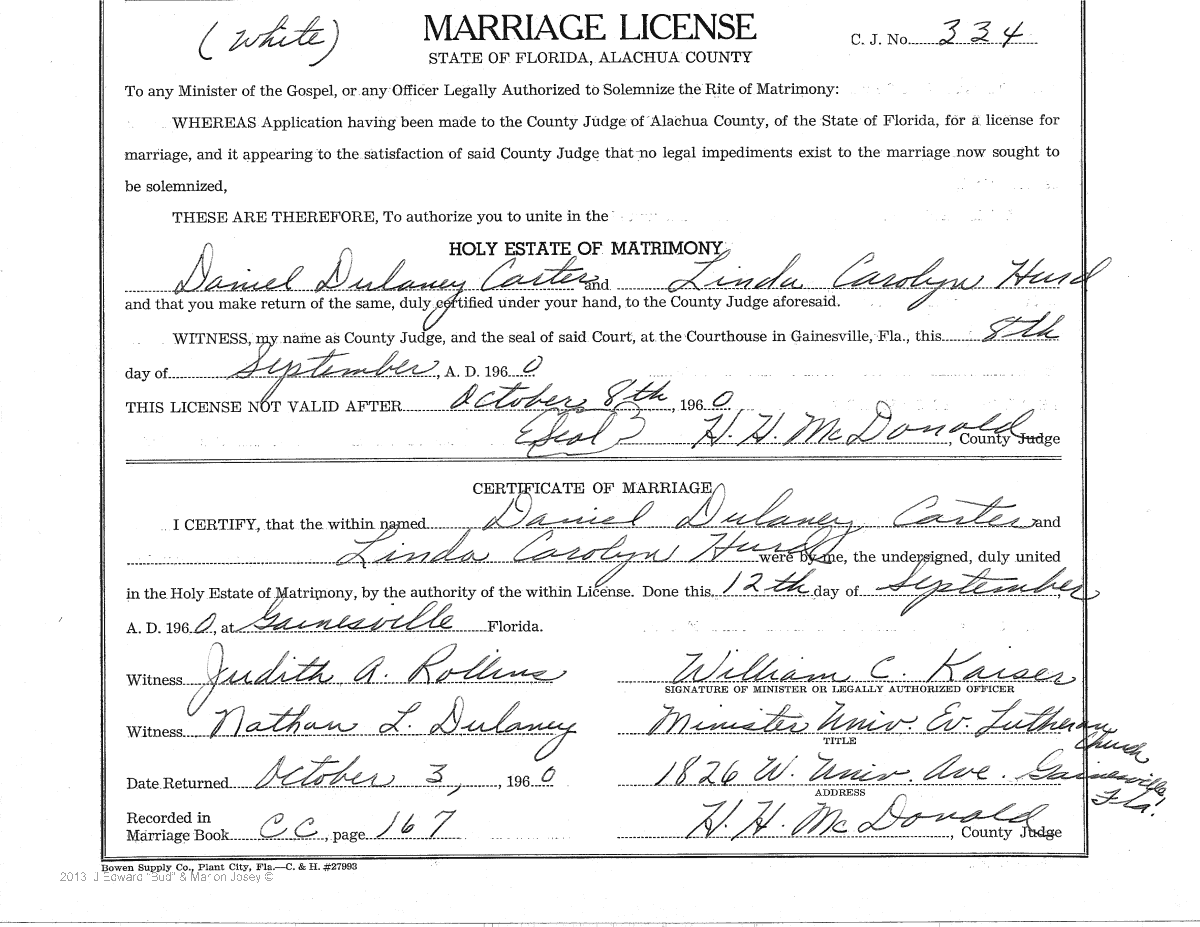 (White)
MARRIAGE LICENSE
C. J. No. 334
STATE OF FLORIDA, ALACHUA COUNTY
To any Minister of the Gospel, or any Officer Legally Authorized to Solemnize the Rite of Matrimony:
WHEREAS Application having been made to the County Judge of Alachua County, of the State of Florida, for a license for
marriage, and it appearing to the satisfaction of said County Judge that no legal impediments exist to the marriage now sought to
be solemnized,
THESE ARE THEREFORE, To authorize you to unite in the
HOLY ESTATE OF MATRIMONY
Daniel Dulaney Carter and Linda Carolyn Hurd
and that you make return of the same, duly certified under your hand, to the County Judge aforesaid.
WITNESS, my name as County Judge, and the seal of said Court, at the Courthouse in Gainesville, Fla., this 8th
day of September, A. D. 1960
THIS LICENSE NOT VALID AFTER October 8th, 1960
(Seal) H. H. McDonald, County Judge
CERTIFICATE OF MARRIAGE
I CERTIFY, that the within named Daniel Dulaney Carter and
Linda Carolyn Hurd were by me, the undersigned, duly united
in the Holy Estate of Matrimony, by the authority of the within License. Done this 12th day of September,
A. D. 1960, at Gainesville Florida.
Witness Judith A. Rollins William C. Kaiser
SIGNATURE OF MINISTER OR LEGALLY AUTHORIZED OFFICER
Witness Nathan L. Dulaney Minister Univ. Ev. Lutheran Church
TITLE
Date Returned October 3, 1960 1826 W. Univ. Ave. Gainesville, Fla.
ADDRESS
Recorded in
Marriage Book CC, page 167 H. H. McDonald, County Judge
Bowen Supply Co., Plant City, Fla.—C. & H. #27993
2013 J Edward "Bud" & Marion Josey ©